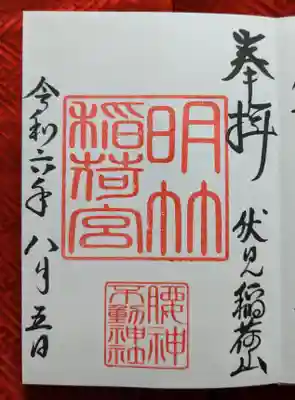 奉拝 伏見稲荷山
明竹
稲荷宮
腰神
不動神社
令和六年八月五日